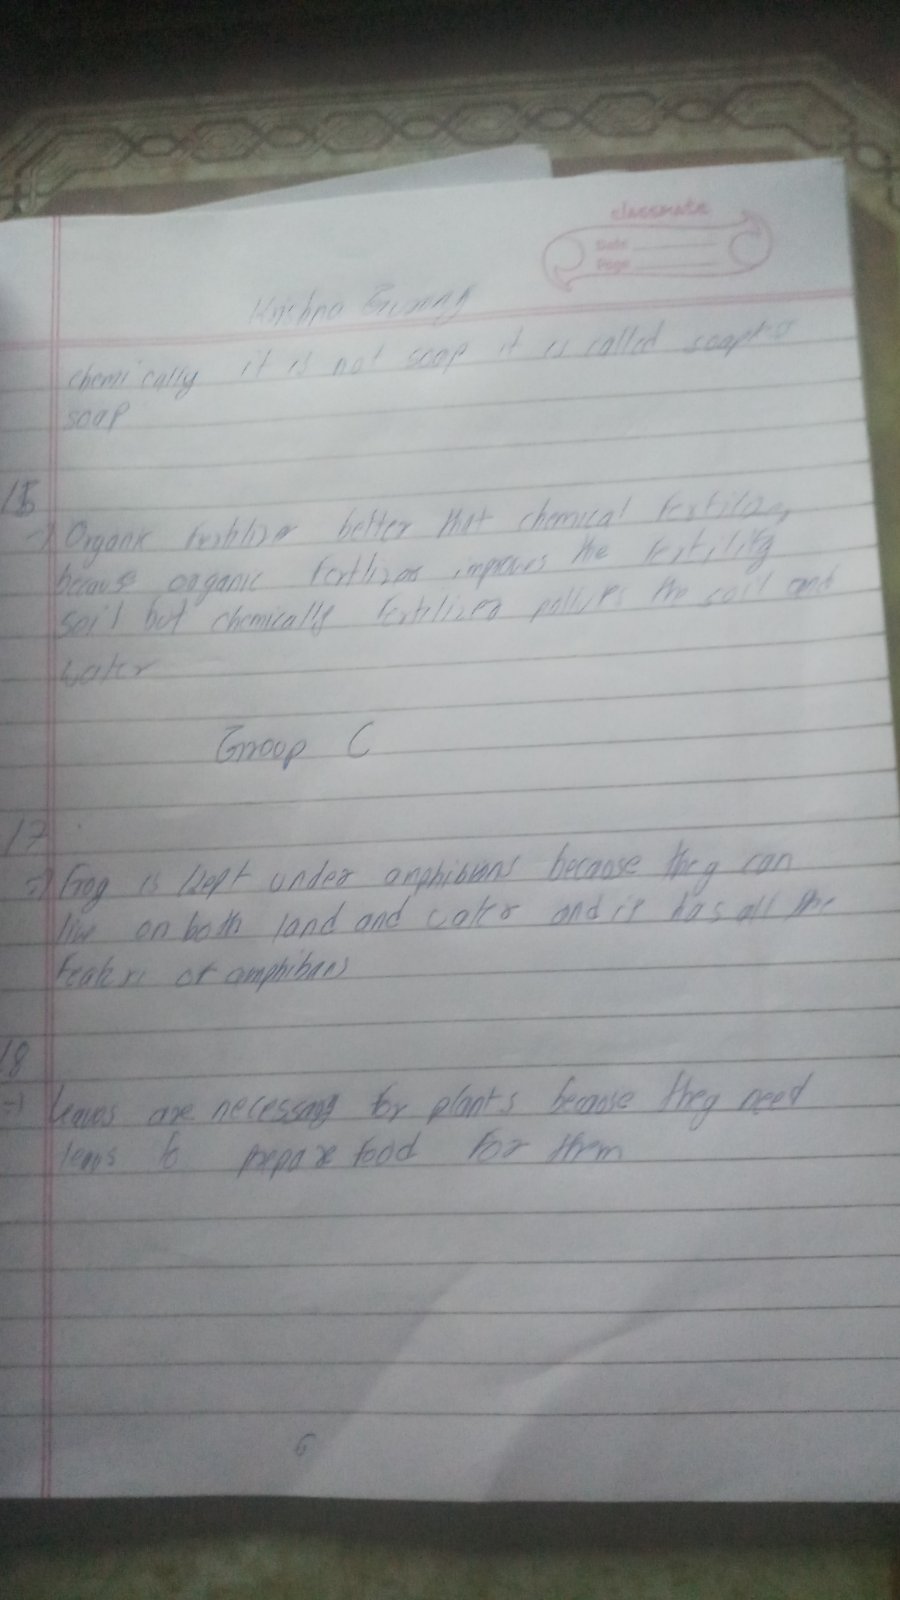 classmate
Date
Page
Krishna Gurung
chemically it is not soap it is called
soap
15
→ Organic fertilizer better that chemical fertilizer,
because organic fertlizer improves the fertility
soil but chemically fertilizer pollutes the soil and
water
Groop C
17
→ Frog is kept under amphibians because they can
live on both land and water and it has all the
of amphibans
18
→ leaves are necessary for plants because they need
to prepare food for them